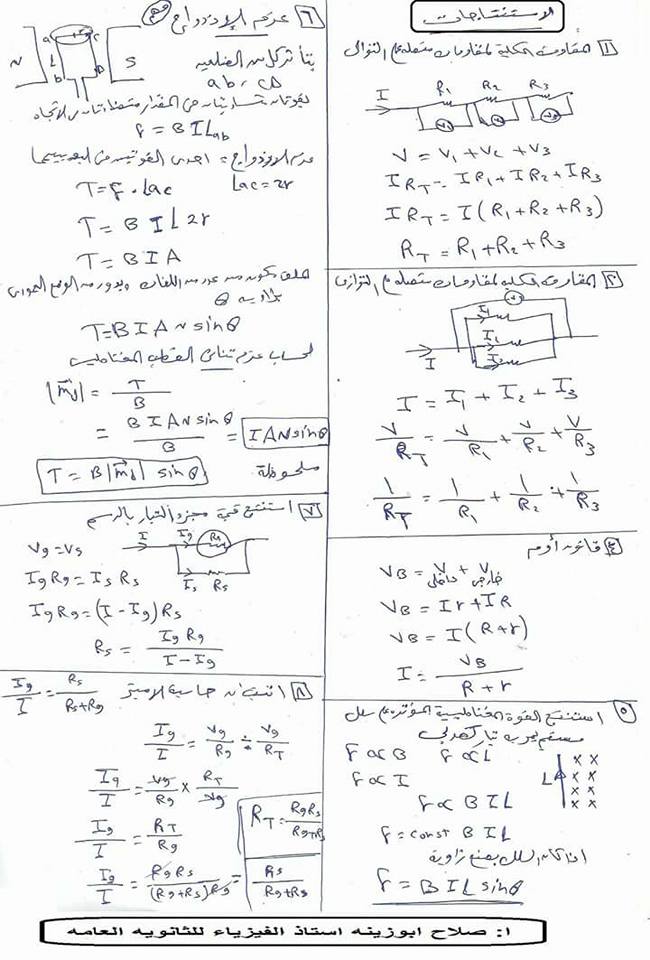 الاستنتاجات
١ المقاومة المكلية لمقاومات متصله على التوالى
R₁ R₂ R₃
I
V = V₁ + V₂ + V₃
I R_T = I R₁ + I R₂ + I R₃
I R_T = I (R₁ + R₂ + R₃)
R_T = R₁ + R₂ + R₃
٢ المقاومة المكلية لمقاومات متصله على التوازى
I₁
I₂
I I₃
I = I₁ + I₂ + I₃
V/R_T = V/R₁ + V/R₂ + V/R₃
1/R_T = 1/R₁ + 1/R₂ + 1/R₃
قانون أوم
V_B = V خارجى + V داخلى
V_B = I r + I R
V_B = I (R + r)
I = V_B / R + r
٥ استنتج القوة المغناطيسية المؤثره على سلك
مستقيم يمر به تيار كهربى
F ∝ B F ∝ L
F ∝ I
L × ×
× ×
× ×
× ×
F ∝ B I L
F = const B I L
اذا كان السلك يصنع زاوية
F = B I L sinθ
٦ عزم الإزدواج مهم
N a c S
L
b D
ab ، CD
قوتان متساويتان فى المقدار متضادتان فى الاتجاه
F = B I L_ab
عزم الازدواج = احدى القوتين فى البعد بينهما
T = F . L_ac L_ac = 2r
T = B I L 2r
T = B I A
ملف يتكون من عدد من اللفات ويدور من الوضع الموازى
بزاويه θ
T = B I A N sinθ
لحساب عزم ثنائى القطب المغناطيسى
|m_d| = T / B
= B I A N sinθ / B = I A N sinθ
ملحوظة
T = B |m_d| sinθ
٧ استنتج قيمة مجزء التيار بالرسم
I I_g R_g
I_s R_s
V_g = V_s
I_g R_g = I_s R_s
I_g R_g = (I - I_g) R_s
R_s = I_g R_g / I - I_g
٨ اثبت ان حساسية الاميتر I_g / I = R_s / R_s + R_g
I_g / I = V_g / R_g ÷ V_g / R_T
I_g / I = V_g / R_g × R_T / V_g
I_g / I = R_T / R_g
R_T = R_g R_s / R_g + R_s
I_g / I = R_g R_s / (R_g + R_s) R_g = R_s / R_g + R_s
ا: صلاح ابوزينه استاذ الفيزياء للثانويه العامه